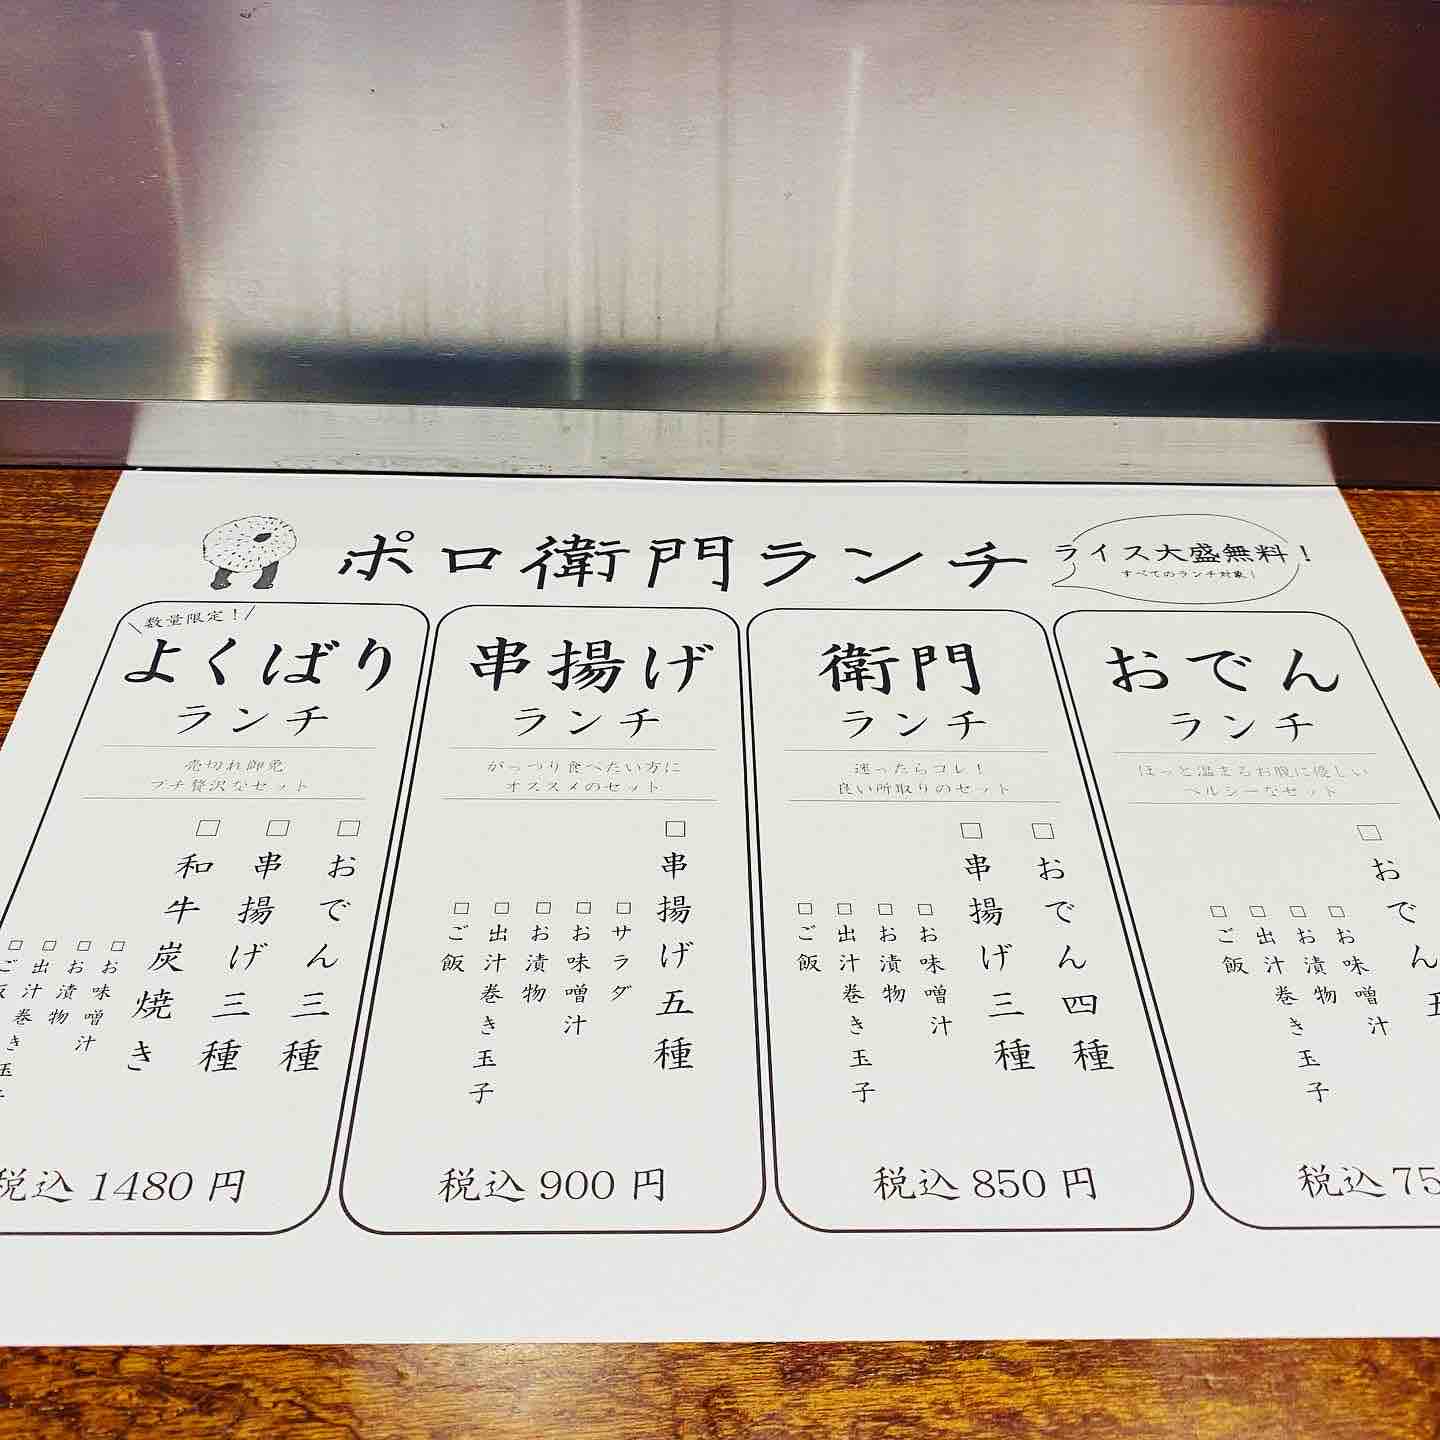 ポロ衛門ランチ
ライス大盛無料！
すべてのランチ対象！
数量限定！
よくばり
ランチ
売切れ御免
プチ贅沢なセット
おでん三種
串揚げ三種
和牛炭焼き
お味噌汁
お漬物
出汁巻き玉子
ご飯
税込1480円
串揚げ
ランチ
がっつり食べたい方に
オススメのセット
串揚げ五種
サラダ
お味噌汁
お漬物
出汁巻き玉子
ご飯
税込900円
衛門
ランチ
迷ったらコレ！
良い所取りのセット
おでん四種
串揚げ三種
お味噌汁
お漬物
出汁巻き玉子
ご飯
税込850円
おでん
ランチ
ほっと温まるお腹に優しい
ヘルシーなセット
おでん
お味噌汁
お漬物
出汁巻き玉子
ご飯
税込75